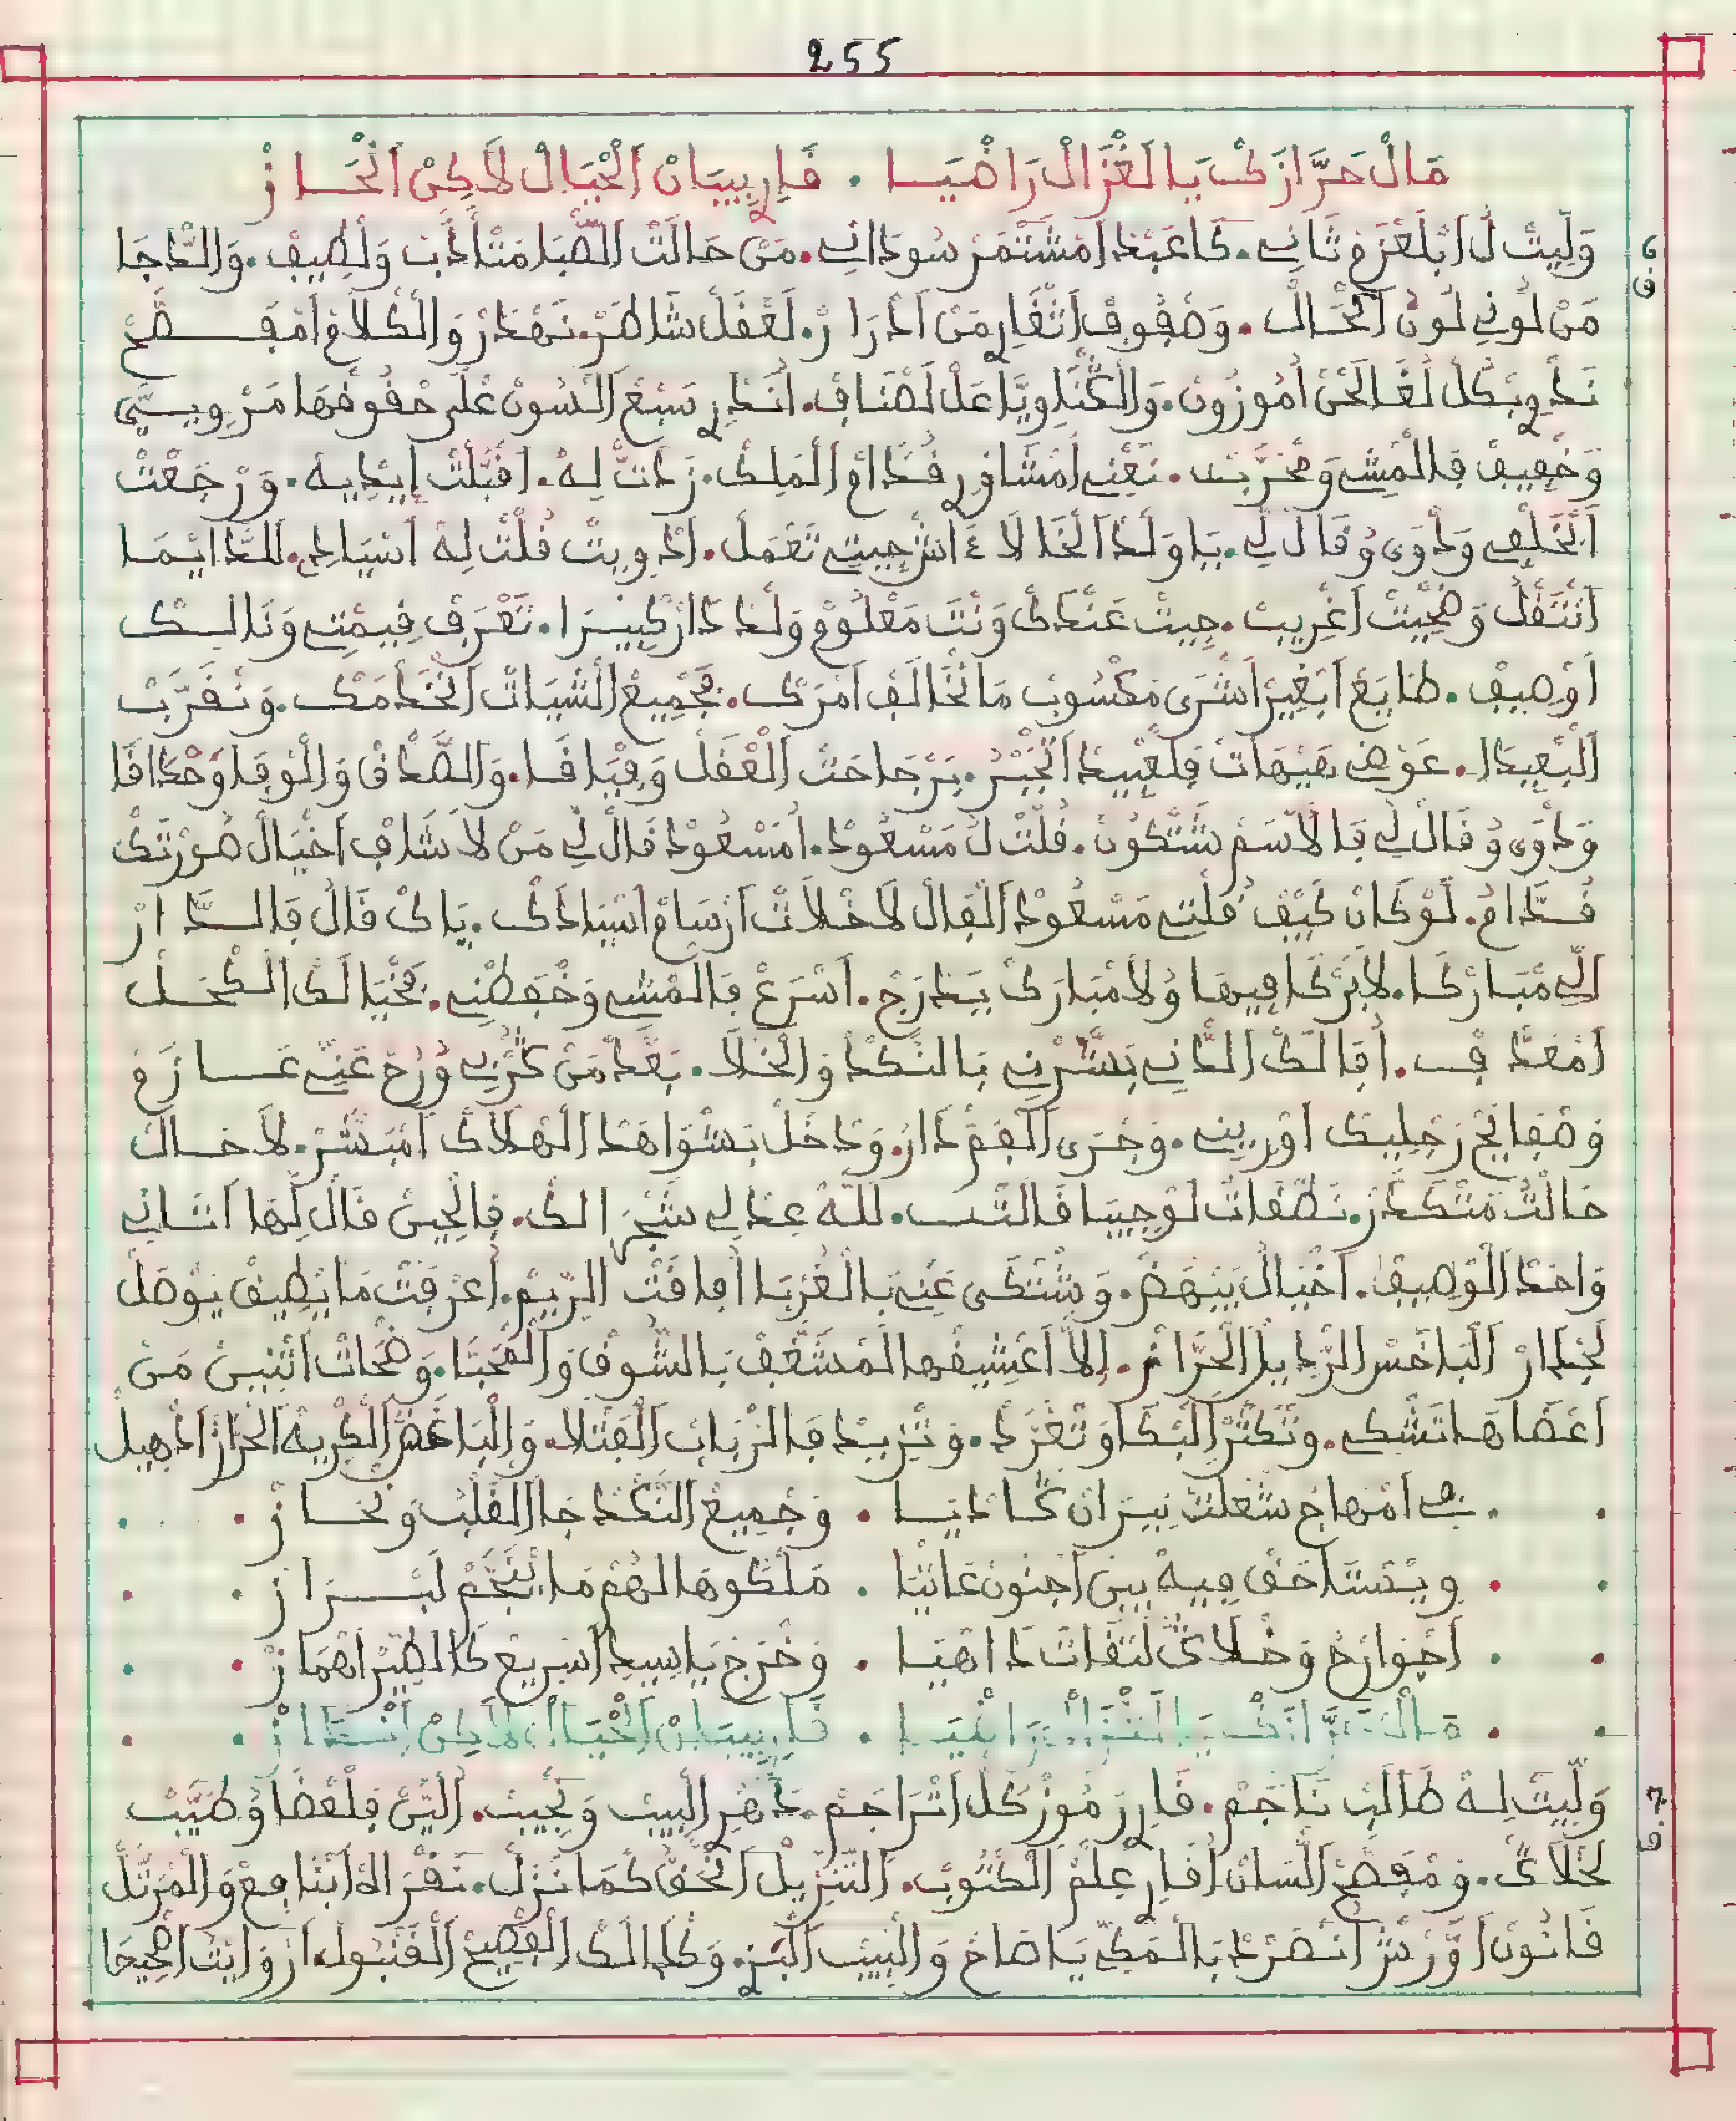 255
مَالْ حَرَّازَكْ يَا لَغْزَالْ رَاضْيَا . قَارِي بِيبَانْ الْحْيَالْ لَاكِنْ انْحَازْ
6 ق
وَلِّيتْ لُ ابْلَعْزَمْ ثَانِي . كَاعَبْدْ امْشَتْمَرْ سُودَانِي . مَنْ حَالَتْ الصّْبَا مَتْأَدَّبْ وَلْطِيفْ . وَالدّْجَا
مَنْ لُونِي لُونُ انْحَالْ . وَصْفُوفْ اثْغَارِي مَنْ ادْرَارْ . لَعْقَلْ شَاطَرْ . نَهْدَرْ وَالْكْلَامْ امْفَصَّحْ
نَدْوِي بَكُلْ لُغَا لَحْنْ أُمُوزُونْ . وَالكْنَاوِيَّا عَلْ لَصْنَافْ . أُنَدْرِي سَبْعْ الْسُونْ عْلَى حْقُوقْهَا مَرْوِيِّينْ
وَخْفِيفْ فَالْمْشِي وَمْخَرَّبْ . نَعْنِي امْشَاوْرِي قُدَّامْ الْمَلِكْ . زَدْتْ لِهْ . اقْبَّلْتْ إِيدِيهْ . وَرْجَعْتْ
الْخَلْفِي وَدْوَى وُقَالْ لِي . يَا وَلْدْ الْخَالَا ءَاشْ جِيتِي تَعْمَلْ . ادْوِيتْ قُلْتْ لِهْ اسْيَادِي . للدَّايْمَا
انْتَقَلْ وَضْحِيتْ اغْرِيبْ . جِيتْ عَنْدَكْ وَنْتَ مَعْلُومْ وَلْدْ دَارْ كْبِيرَا . تَعْرَفْ قِيمْتِي وَنَالِكْ
اوْصِيفْ . طَايَعْ ابْغِيرْ اشْرَى مَكْسُوبْ مَانْخَالَفْ امْرَكْ . بَجْمِيعْ الْشْيَاتْ انْخَدْمَكْ . وَنْقَرَّبْ
الْبْعِيدَا . عَوْضِي هَيْهَاتْ فَلْعْبِيدْ الْخْبَرْ . بَرْجَاحَتْ الْعْقَلْ وَقْيَافَا . وَالصّْدَاقْ وَالْوْفَا وَحْدَاقَا
وَدْوَى وُقَالْ لِي فَا لَاسَمْ شَتْكُونْ . قُلْتْ لُ مَسْعُودْ . أُمَسْعُودْ قَالْ لِي مَنْ لَا شَافْ اخْيَالْ صُورْتَكْ
قُدَّامُ . لَوْكَانْ كَيْفْ قُلْتِي مَسْعُودْ الْفَالْ لَاخْلَاتْ ارْسَامْ اسْيَادَكْ . يَاكْ قَالُ فَالدَّارْ
الِّي مْبَارْكَا . لَا بَرْكَا فِيهَا وُلَا مْبَارَكْ يَدْرَجْ . اسْرَعْ فَالْمْشِي وَخْفَطْنِي . بَخْيَالَكْ الْكْحَلْ
امْغَدَّفْ . أُفَالَكْ الدَّنِي بَشَّرْنِي بَالنّْكَدْ وَالْخْلَا . بَعْدْ مَنْ كَرْبِي وُرُحْ عَنِّي عَازَمْ
وَصْفَايَحْ رَجْلِيكْ اوْرِينِي . وَجْرَى الْفَمّْ دَارُ . وَدْخَلْ بَشْوَاهَدْ الْهْلَاكْ امْبَشَّرْ . لَا خَالْ
حَالْتُ مَتْكَدَّرْ . نَطْقَاتْ لَوْجِيبَا قَالَتْ . للَّهْ عِدْ لِي شَجْرَا لَكْ . فَالْحِينْ قَالْ لِهَا اتَانِي
وَاحْدْ الْوْصِيفْ . اخْيَالْ يَنْهَضْ . وَشْتَكَى عَنِّي بَالْغُرْبَا أُفَاقَتْ الرِّيمْ . أُعْرْفَتْ مَا يْطِيقْ يَوْصَلْ
لْحْدَارْ الْبَاخَسْ الرّْدِيلْ الْحَرَّازْ . إِلَّا اعْشِيقْهَا لَمْشَغَّفْ بَالشُّوقْ وَالْمْحَبَّا . وَضْحَاتْ اتْبَيَّنْ مَنْ
اعْضَاهَا تَشْكِي . وَتْكَتَّرْ الْبْكَا وَتْغَرَّدْ . وَتْزِيدْ فَالزّْبَابْ الْقَتَّالَا . وَالْبَاغَضْ الْكْرِيهْ الْحَرَّازْ ادْهِيلْ
. بِي امْهَاجُ شَعْلَتْ نِيرَانْ كَادْيَا . وَجْمِيعْ النّْكَدْ جَا الْقَلْبُ وَنْحَازْ .
. وِيتْسَتَاحَقْ فِيهْ بِينْ اجْنُونْ عَاتْيَا . مَلْكُوهَا لْهُمْ مَا يْنَجَّمْ لَبْرَازْ .
. اجْوَارْحُ وَخْلَاكُ لْتَقَاتْ دَاهْيَا . وَخْرَجْ يَا سِيدِي اسْرِيعْ كَالطِّيرْ اهْمَازْ .
. مَالْ حَرَّازَكْ يَا لَغْزَالْ رَاضْيَا . قَارِي بِيبَانْ الْحْيَالْ لَاكِنْ انْحَازْ .
7 ق
وَلِّيتْ لِهْ طَالَبْ نَاجَمْ . قَارِي رَمُوزْ كُلْ اتْرَاجَمْ . دَهْرِي لَبِيبْ وَنْجِيبْ . الِّينْ فَلْعْضَا وُطَيَّبْ
لَخْلَاكْ . وَمْفَصَّحْ السَانْ أُقَارِي عِلْمْ الْكْتُوبْ . التَّنْزِيلْ الْحَقّْ كَمَا نَزَلْ . نَقْرَاهْ ابْنَافِعْ وَالْمْرَتَّلْ
قَانُونْ اوَّرْشْ انْصَرَّدْ بَالْمَكِّي يَا صَاحْ وَالْبِيتْ الْبَزِّي . وَكْدَالَكْ الْفْصِيحْ الْقَنْبُولْ . ارْوَايْتْ اصْحِيحَا